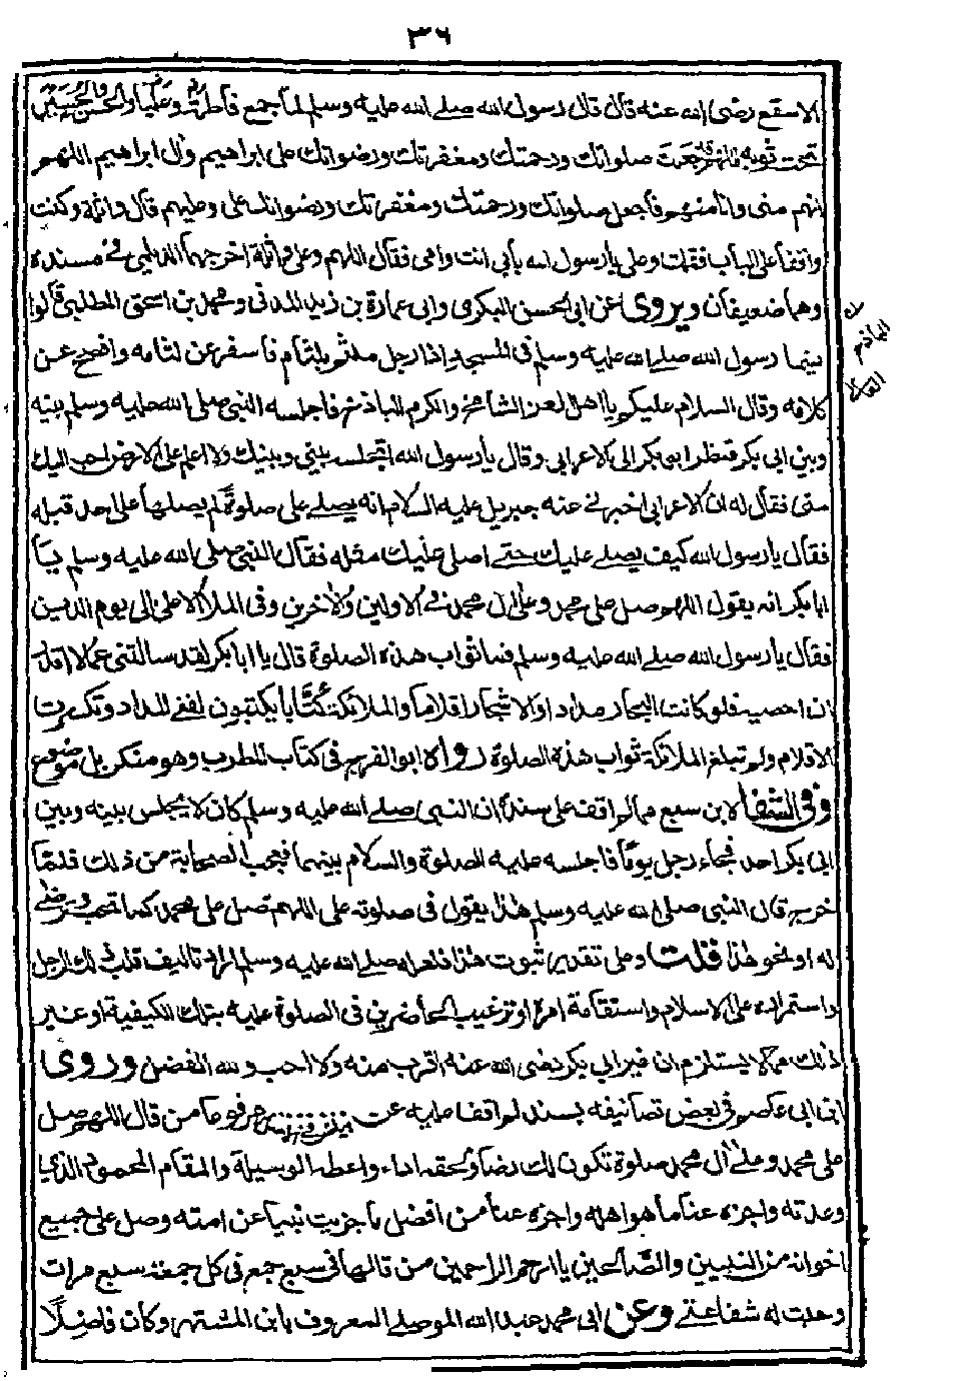 ٣٦
الاسقع رضى الله عنه قال قال رسول الله صلى الله عليه وسلم لما جمع فاطمة وعليا والحسن والحسين
تحت ثوبه اللهم قد جعلت صلواتك ورحمتك ومغفرتك ورضوانك على ابراهيم وآل ابراهيم اللهم
انهم منى وانا منهم فاجعل صلواتك ورحمتك ومغفرتك ورضوانك على وعليهم قال واثلة وكنت
واقفا على الباب فقلت وعلى يا رسول الله بأبى انت وامى فقال اللهم وعلى واثلة اخرجهما الديلمى فى مسنده
وهما ضعيفان ويروى عن ابى الحسن البكرى وابى عمارة بن زيد المدنى ومحمد بن اسحق المطلبى قالوا
بينما رسول الله صلى الله عليه وسلم فى المسجد اذا رجل ملثم بلثام فاسفر عن لثامه وافصح عن
كلامه وقال السلام عليكم يا اهل العز الشامخ والكرم الباذخ فاجلسه النبى صلى الله عليه وسلم بينه
وبين ابى بكر فنظر ابو بكر الى الاعرابى وقال يا رسول الله اتجلسه بينى وبينك ولا اعلم على الارض احب اليك
منى فقال له ان الاعرابى اخبرنى عنه جبريل عليه السلام انه يصلى على صلوة لم يصلها على احد قبله
فقال يا رسول الله كيف يصلى عليك حتى اصلى عليك مثله فقال النبى صلى الله عليه وسلم يا
ابا بكر انه يقول اللهم صل على محمد وعلى آل محمد فى الاولين والآخرين وفى الملا الاعلى الى يوم الدين
فقال يا رسول الله صلى الله عليه وسلم فما ثواب هذه الصلوة قال يا ابا بكر لقد سالتنى عما لا اقدر
ان احصيه فلو كانت البحار مدادا والاشجار اقلاما والملائكة كتّابا يكتبون لفنى المداد وتكسرت
الاقلام ولم تبلغ الملائكة ثواب هذه الصلوة رواه ابو الفرج فى كتاب المطرب وهو منكر بل موضوع
وفى الشفا لابن سبع مما لم اقف على سنده ان النبى صلى الله عليه وسلم كان لا يجلس بينه وبين
ابى بكر احد فجاء رجل يوما فاجلسه عليه الصلوة والسلام بينهما فعجب الصحابة من ذلك فلما
خرج قال النبى صلى الله عليه وسلم هذا يقول فى صلوته على اللهم صل على محمد كما تحب وترضى
له او نحو هذا قلت وعلى تقدير ثبوت هذا فلعله صلى الله عليه وسلم اراد تاليف قلب ذلك الرجل
واستمراره على الاسلام واستقامة امره او ترغيب الحاضرين فى الصلوة عليه بتلك الكيفية او غير
ذلك مما لا يستلزم ان غير ابى بكر رضى الله عنه اقرب منه ولا احب ولله الفضل وروى
ابن ابى عاصم فى بعض تصانيفه بسند لم اقف عليه مرفوعا من قال اللهم صل
على محمد وعلى آل محمد صلوة تكون لك رضا ولحقه اداء واعطه الوسيلة والمقام المحمود الذى
وعدته واجزه عنا ما هو اهله واجزه عنا من افضل ما جزيت نبيا عن امته وصل على جميع
اخوانه من النبيين والصالحين يا ارحم الراحمين من قالها فى سبع جمع فى كل جمعة سبع مرات
وجبت له شفاعتى وعن ابى محمد عبد الله الموصلى المعروف بابن المشتهر وكان فاضلًا